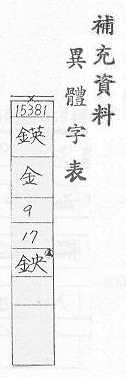 補充資料
異體字表
15381
鍈
金
9
17
鉠